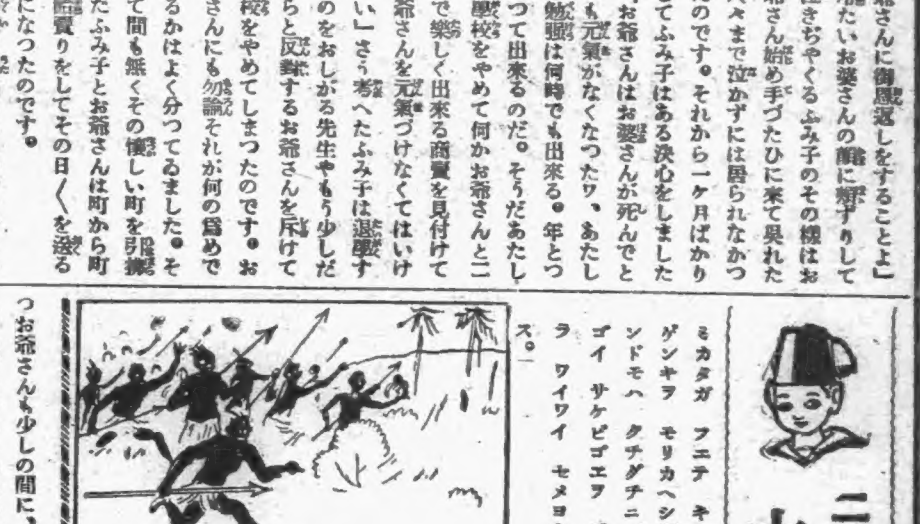 爺さんに御恩返しをすることよ」
たいお婆さんの顔に頬ずりして
泣きぢやくるふみ子のその樣はお
爺さん始め手づたひに来て呉れた
人々まで泣かずには居られなかつ
たのです。それから一ケ月ばかり
してふみ子はある決心をしました
お爺さんはお婆さんが死んでと
も元氣がなくなつたワ、あたし
勉強は何時でも出來る。年とつ
つて出來るのだ。そうだあたし
學校をやめて何かお爺さんと二
で樂しく出來る商賣を見付けて
爺さんを元氣づけなくてはいけ
い」さう考へたふみ子は退學す
のをおしがる先生やもう少しだ
らと反對するお爺さんを斥けて
校をやめてしまつたのです。お
さんにも勿論それが何の爲めで
るかはよく分つてゐました。そ
て間も無くその懷しい町を引拂
たふみ子とお爺さんは町から町
賣りをしてその日〱を送る
になつたのです。
ニ
ミカタガ フエテ キ
ゲンキヲ モリカヘシ
ンドモハ クチグチニ
ゴイ サケビゴエヲ
ラ ワイワイ セメヨ
ス。
つお爺さんも少しの間に、